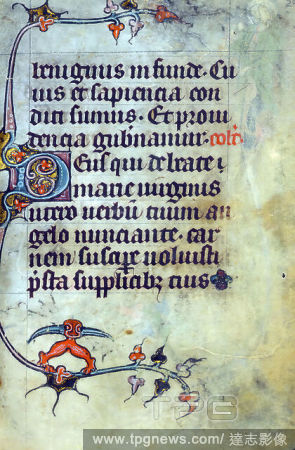 benignus infunde. Cu
ius et sapiencia con
diti sumus. Et prouі
dencia gubnamur. colꝉ.
Deus qui de beate
marie uirginis
utero uerbū tuum an
gelo nunciante. car
nem suscipe uoluisti
psta supplicibz tuis
TPG
www.tpgnews.com/ 達志影像